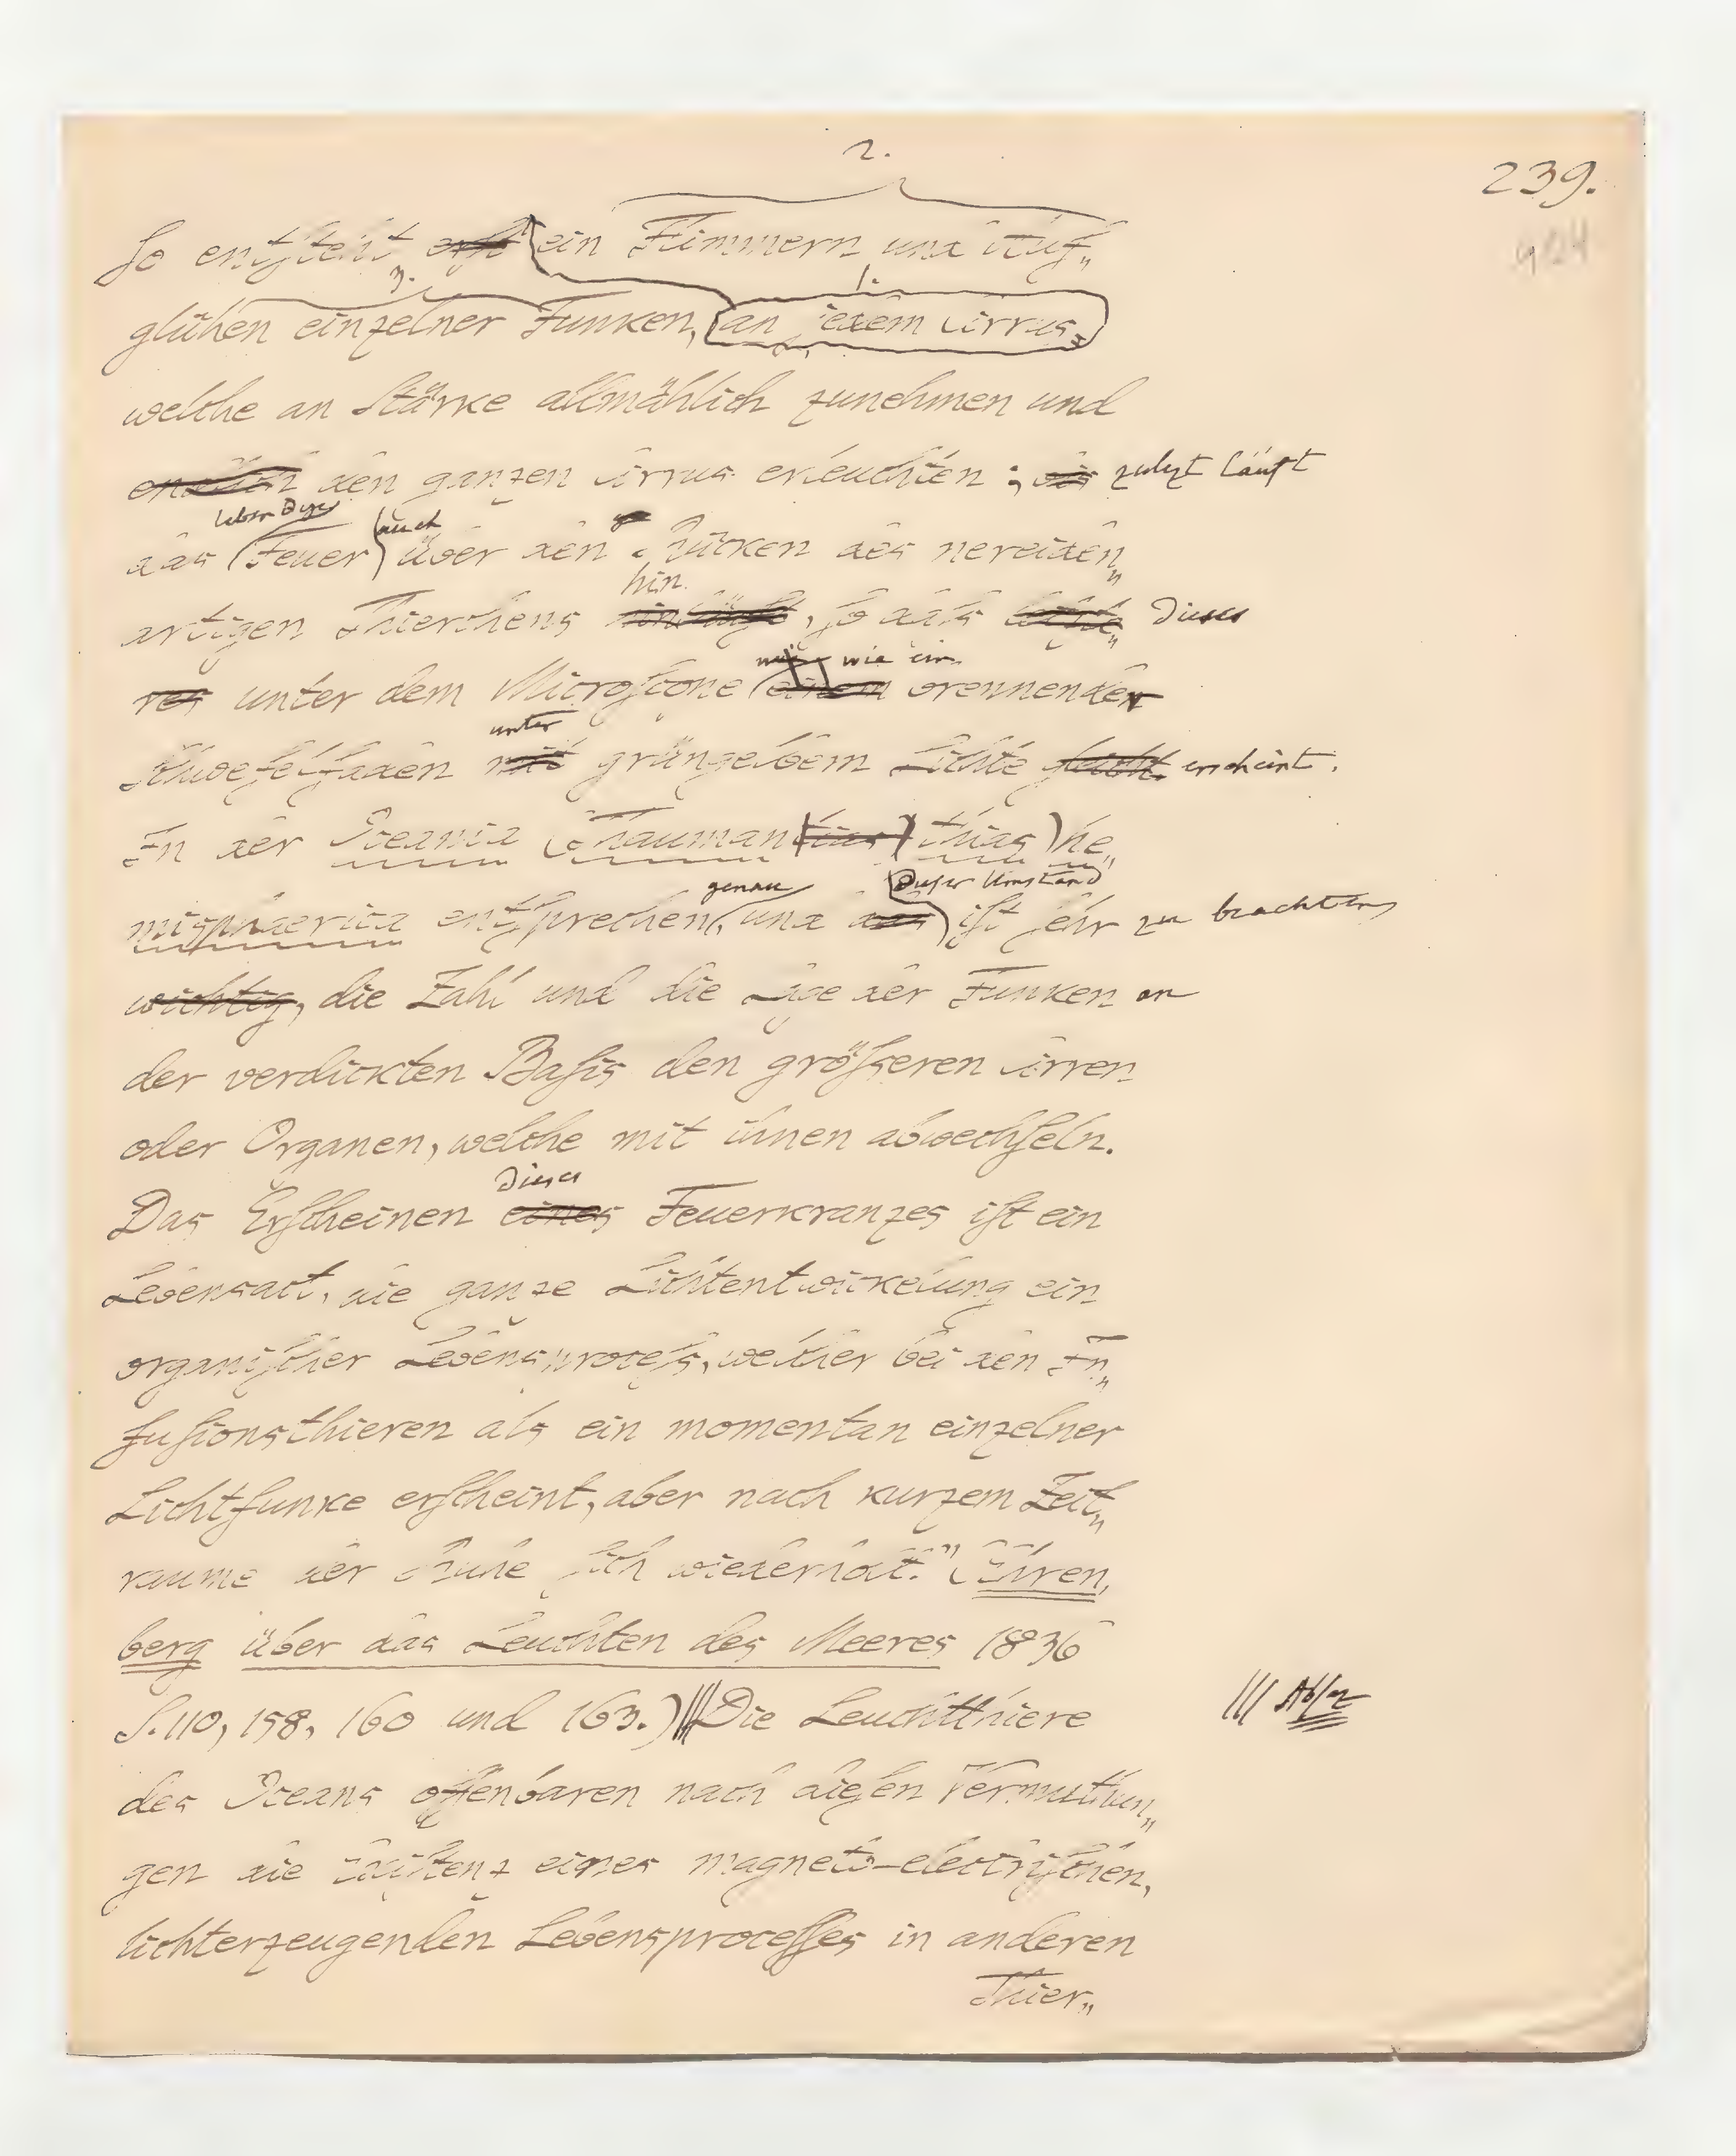 2.
239.
So entsteht erst ein Flimmern und Auf„
3. 1.
glühen einzelner Funken, an jedem Cirrus,
welche an Stärke allmählich zunehmen und
endlich den ganzen Cirrus erleuchten; zulezt läuft
auch
das Feuer über den Rücken des nereiden„
hin.
artigen Thierchens hinläuft, so daß dieses
wie ein
res unter dem Microscope einem brennenden
unter
Schwefelfaden mit grüngelbem Lichte leicht erscheint.
In der Oceania (Thauman tias) thias) he„
genau Dieser Umstand
misphaerica entsprechen, und das ist sehr zu beachten
wichtig, die Zahl und die Lage der Funken an
der verdickten Basis den größeren Cirren
oder Organen, welche mit ihnen abwechseln.
Dieses
Das Erscheinen eines Feuerkranzes ist ein
Lebensact, die ganze Lichtentwickelung ein
organischer Lebensproceß, welcher bei den In„
fusionsthieren als ein momentan einzelner
Lichtfunke erscheint, aber nach kurzem Zeit„
raume der Ruhe sich wiederholt." (Ehren„
berg über das Leuchten des Meeres 1836
S. 110, 158, 160 und 163.) ||| Die Leuchtthiere ||| Absz
des Oceans offenbaren nach diesen Vermuthun„
gen die Existenz eines magneto-electrischen,
lichterzeugenden Lebensprocesses in anderen
Thier„